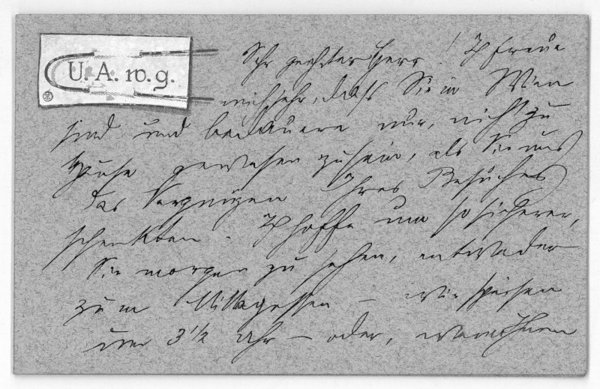 U. A. w. g.
Sehr geehrter Herr! Ich freue
mich sehr, dass Sie in Wien
sind und bedauere nur, nicht zu
Hause gewesen zu sein, als Sie uns
das Vergnügen Ihres Besuches
schenkten. Ich hoffe um so sicherer,
Sie morgen zu sehen, entweder
zum Mittagessen – wir speisen
um 3½ Uhr – oder, wenn Ihnen